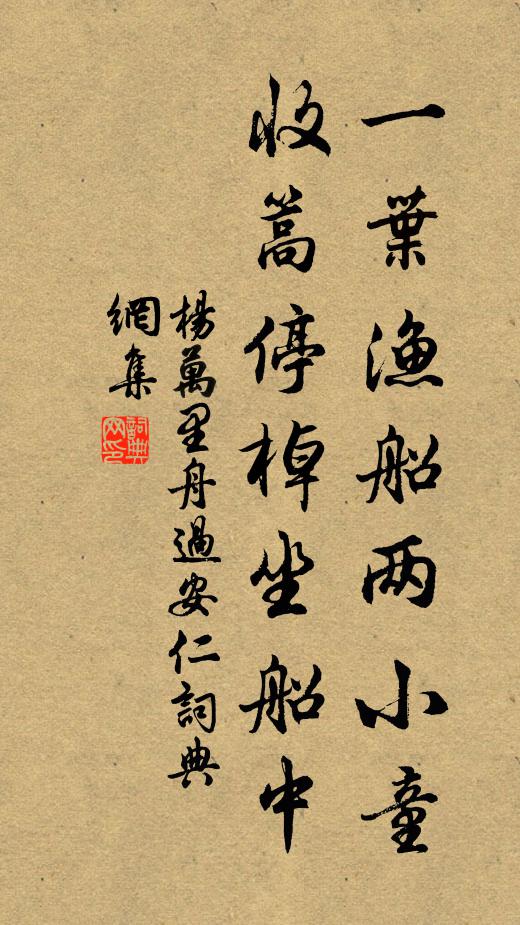 一葉漁船两小童
收篙停棹坐船中
楊萬里舟過安仁詞典
網集
詞典网印